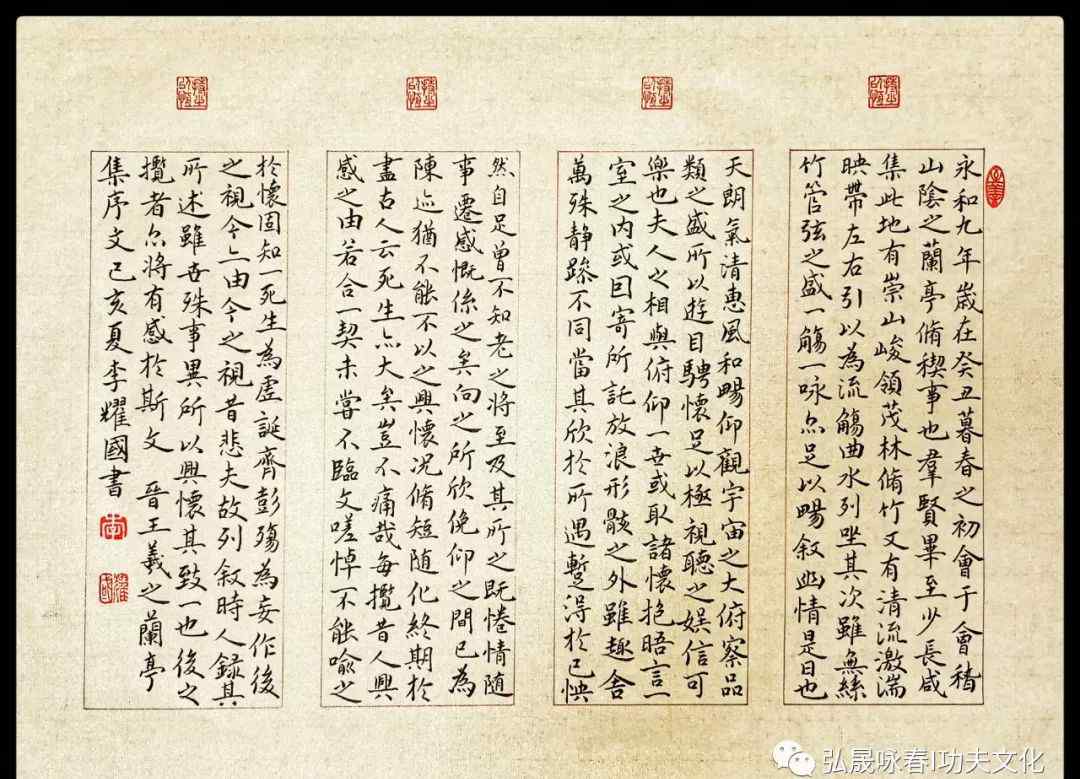 永和九年歲在癸丑暮春之初會于會稽
山陰之蘭亭脩稧事也羣賢畢至少長咸
集此地有崇山峻領茂林脩竹又有清流激湍
映帶左右引以為流觴曲水列坐其次雖無絲
竹管弦之盛一觴一咏亦足以暢叙幽情是日也
天朗氣清惠風和暢仰觀宇宙之大俯察品
類之盛所以遊目騁懷足以極視聽之娛信可
樂也夫人之相與俯仰一世或取諸懷抱晤言一
室之内或因寄所託放浪形骸之外雖趣舍
萬殊静躁不同當其欣於所遇蹔得於己怏
然自足曾不知老之將至及其所之既惓情隨
事遷感慨係之矣向之所欣俛仰之間已為
陳迹猶不能不以之興懷況脩短随化終期於
盡古人云死生亦大矣豈不痛哉每攬昔人興
感之由若合一契未嘗不臨文嗟悼不能喻之
於懷固知一死生為虛誕齊彭殤為妄作後
之視今亦由今之視昔悲夫故列叙時人録其
所述雖世殊事異所以興懷其致一也後之
攬者亦將有感於斯文 晉王羲之蘭亭
集序文己亥夏李耀國書
李
耀國
弘晟咏春|功夫文化